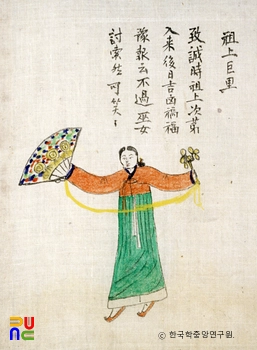 祖上巨里
致誠時祖上次第
入来後日吉凶禍福
豫報云不過巫女
討索 可笑〻
ⓒ 한국학중앙연구원.